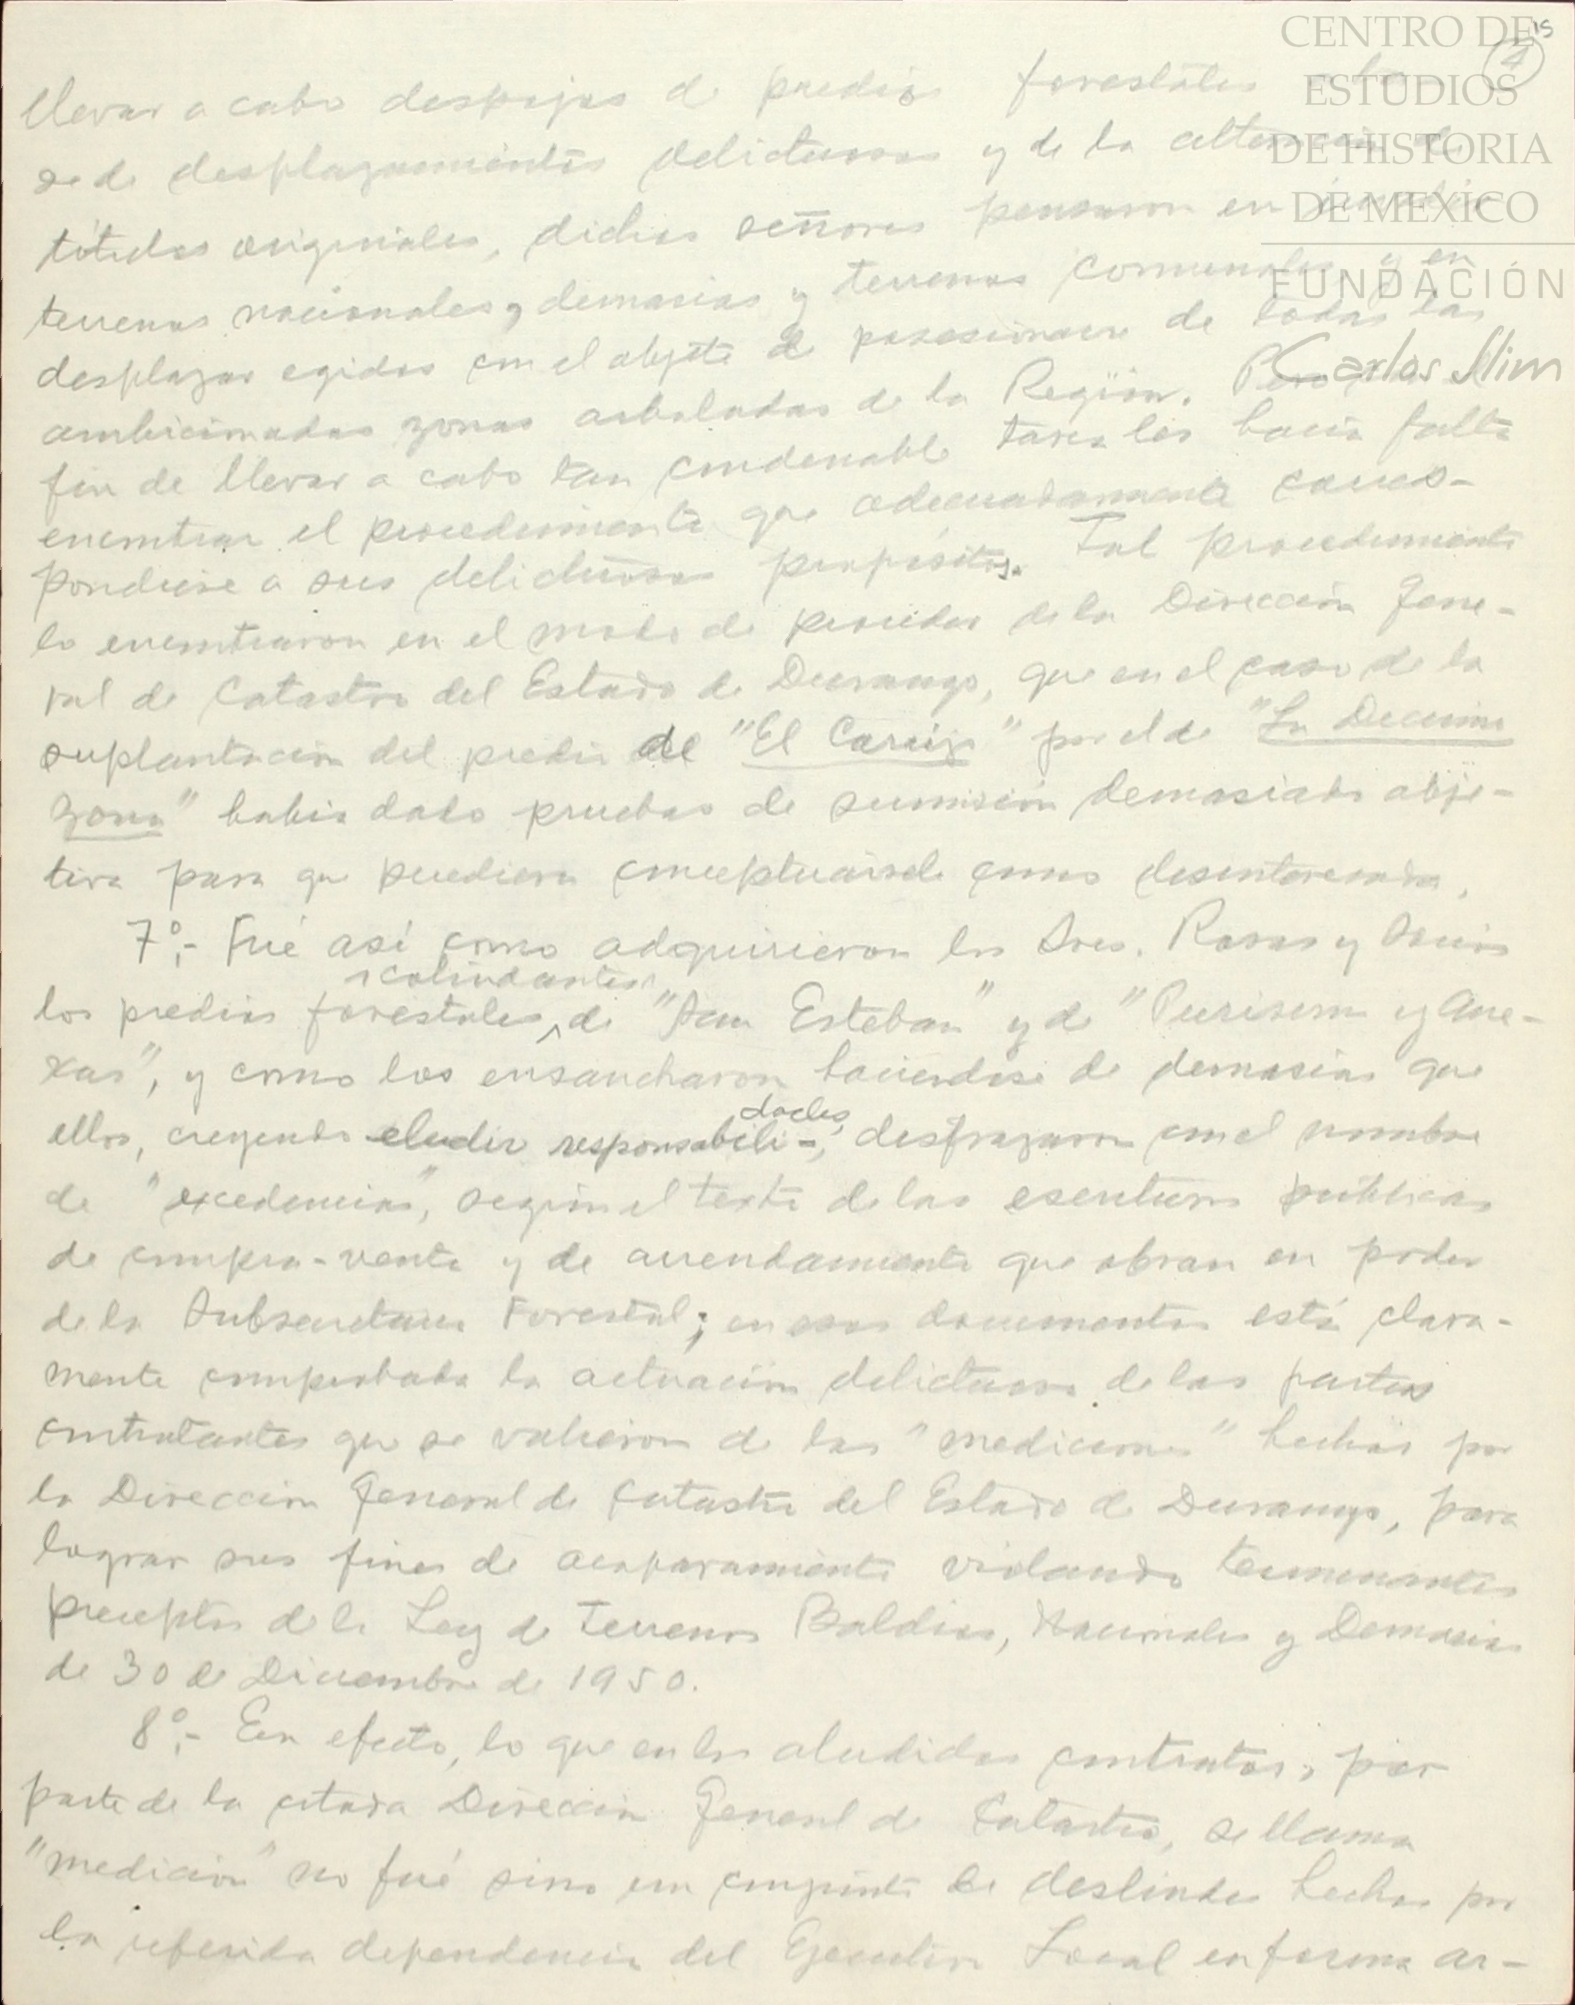 15
4
CENTRO DE
ESTUDIOS
DE HISTORIA
DE MEXICO
FUNDACIÓN
Carlos Slim
llevar a cabo despojos de predios forestales
se de desplazamientos delictuosos y de la alteración de
títulos originales, dichos señores pensaron en
terrenos nacionales, demasias y terrenos comunales y en
desplazar egidos con el objeto de posesionarse de todas las
ambicionadas zonas arboladas de la Región. Pero
fin de llevar a cabo tan condenable tarea les hacia falta
encontrar el procedimiento que adecuadamente corres-
pondiese a sus delictuosos propósitos. Tal procedimiento
lo encontraron en el modo de proceder de la Dirección Gene-
ral de Catastro del Estado de Durango, que en el caso de la
suplantación del predio de "El Carrizo" por el de "La Decima
Zona" habia dado pruebas de sumisión demasiado obje-
tiva para que pudiera conceptuarsele como desinteresada.
7°.- Fué así como adquirieron los Sres. Rosas y Socios
los predios forestales, colindantes, de "San Esteban" y de "Purisima y Ane-
xas", y como los ensancharon haciendose de demasias que
ellos, creyendo eludir responsabili-dades, disfrazaron con el nombre
de "excedencias", según el texto de las escrituras públicas
de compra-venta y de arrendamiento que obran en poder
de la Subsecretaria Forestal; en esos documentos está clara-
mente comprobada la actuación delictuosa de las partes
contratantes que se valieron de las "mediciones" hechas por
la Dirección General de Catastro del Estado de Durango, para
lograr sus fines de acaparamiento violando terminantes
preceptos de la Ley de Terrenos Baldios, Nacionales y Demasias
de 30 de Diciembre de 1950.
8°.- En efecto, lo que en los aludidos contratos, por
parte de la citada Dirección General de Catastro, se llama
"medición" no fué sino un conjunto de deslindes hechos por
la referida dependencia del Ejecutivo Local en forma ar-